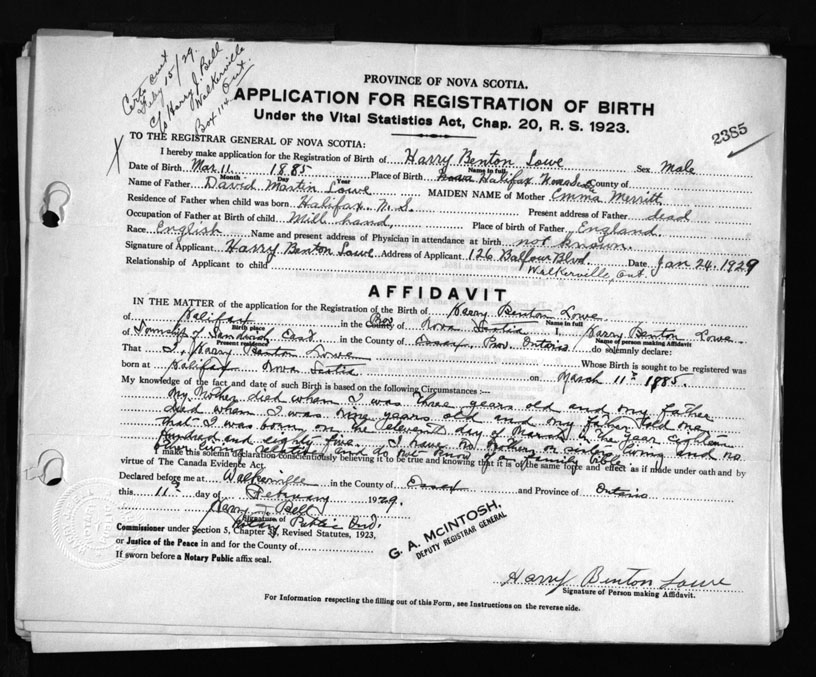 Certs out
Feby 15/29.
C/o Harry J. Bell
Walkerville
Box 114 Ont.
PROVINCE OF NOVA SCOTIA.
APPLICATION FOR REGISTRATION OF BIRTH
Under the Vital Statistics Act, Chap. 20, R. S. 1923.
2385
TO THE REGISTRAR GENERAL OF NOVA SCOTIA:
I hereby make application for the Registration of Birth of Harry Benton Lowe Sex Male
Name in full
Date of Birth Mar. 11. 1885 Place of Birth Halifax Nova Scotia County of
Month Day Year
Name of Father David Martin Lowe MAIDEN NAME of Mother Emma Merritt
Residence of Father when child was born Halifax N. S. Present address of Father dead
Occupation of Father at Birth of child Mill hand, Place of birth of Father England
Race English Name and present address of Physician in attendance at birth not known.
Signature of Applicant Harry Benton Lowe Address of Applicant 126 Balfour Blvd. Date Jan 24. 1929
Relationship of Applicant to child Walkerville, Ont.
AFFIDAVIT
IN THE MATTER of the application for the Registration of the Birth of Harry Benton Lowe
of Halifax in the County Prov of Nova Scotia I, Harry Benton Lowe
Birth place Name in full
of Township of Sandwich East in the County of Essex, Prov. Ontario do solemnly declare:
Present residence Name of person making Affidavit
That I, Harry Benton Lowe Whose Birth is sought to be registered was
born at Halifax Nova Scotia on March 11th 1885.
My knowledge of the fact and date of such Birth is based on the following Circumstances:—
My mother died when I was three years old and my father
died when I was nine years old and my father told me
that I was born on the eleventh day of March in the year eighteen
hundred and eighty five. I have no brothers or sisters living and no
other relatives and do not know of a family bible
I make this solemn declaration conscientiously believing it to be true and knowing that it is of the same force and effect as if made under oath and by
virtue of The Canada Evidence Act.
Declared before me at Walkerville in the County of Essex and Province of Ontario
this 11th day of February 1929.
Harry J. Bell
Signature of
Notary Public Ont.
Commissioner under Section 5, Chapter 38, Revised Statutes, 1923,
or Justice of the Peace in and for the County of
If sworn before a Notary Public affix seal.
G. A. McINTOSH,
DEPUTY REGISTRAR GENERAL
Harry Benton Lowe
Signature of Person making Affidavit.
For Information respecting the filling out of this Form, see Instructions on the reverse side.